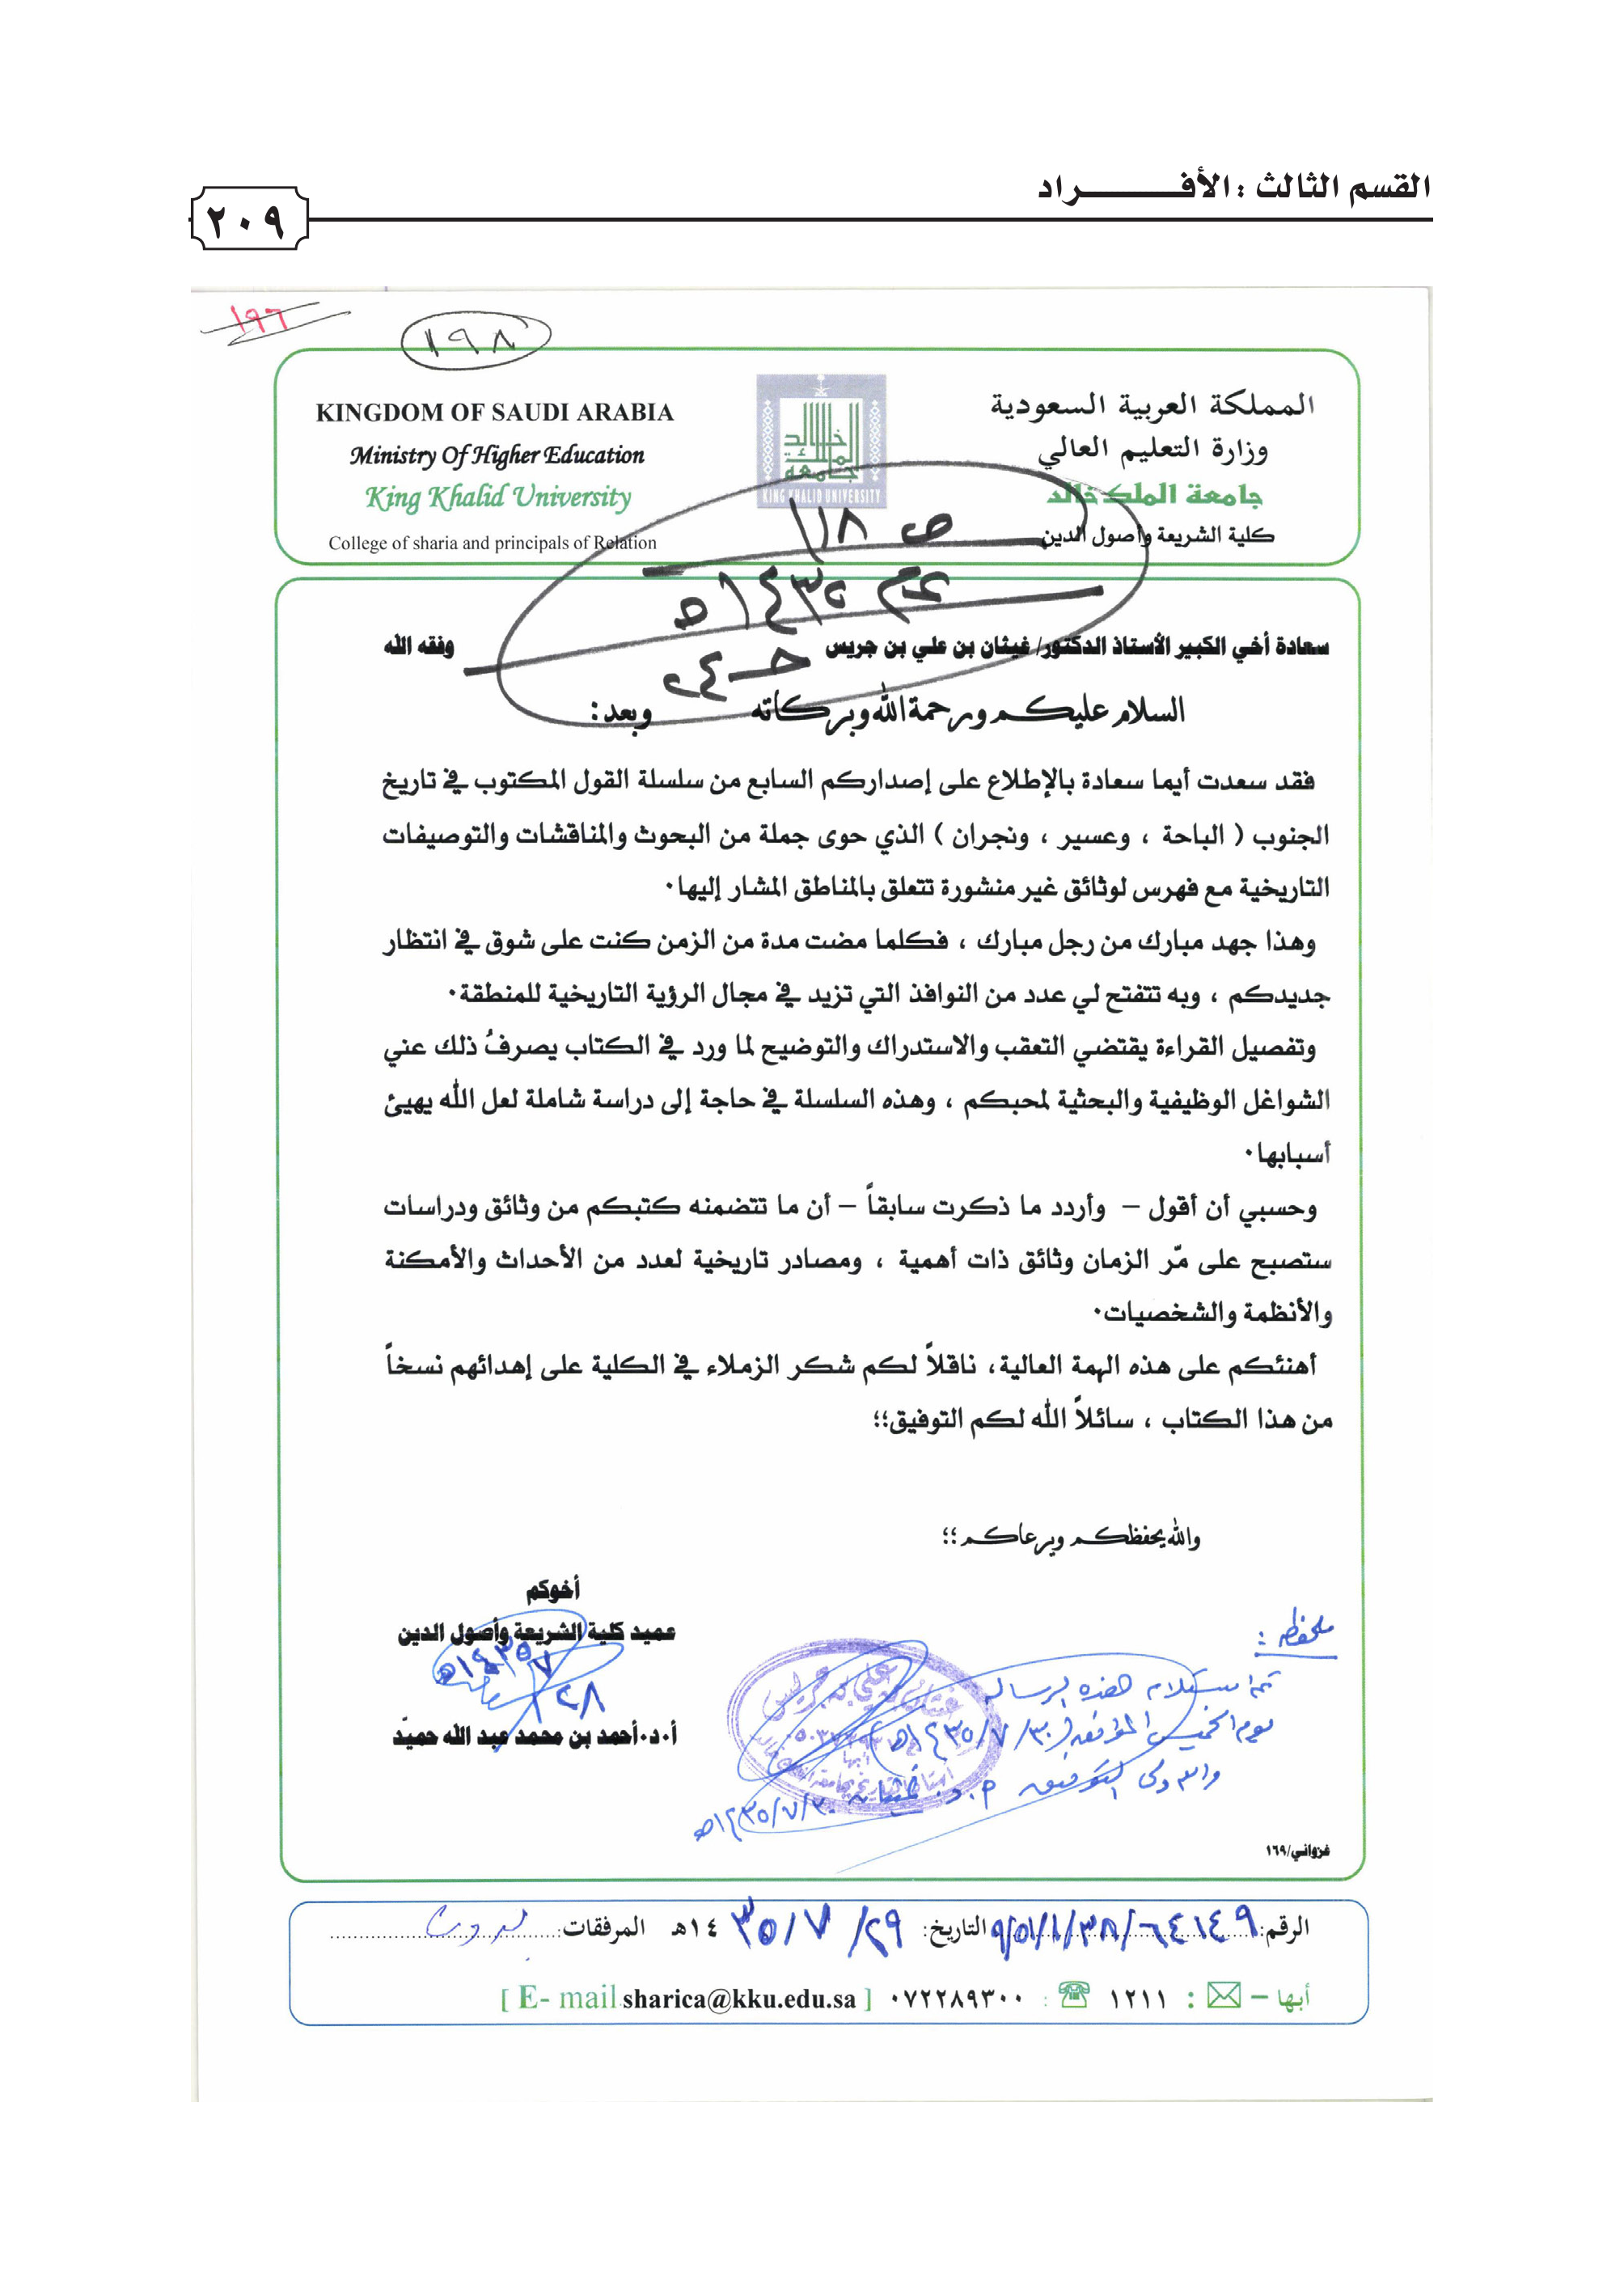 القسم الثالث : الأفـــــــــراد
٢٠٩
١٩٦
١٩٨
المملكة العربية السعودية
وزارة التعليم العالي
جامعة الملك خالد
كلية الشريعة وأصول الدين
خالد
الملك
جامعة
KING KHALID UNIVERSITY
KINGDOM OF SAUDI ARABIA
Ministry Of Higher Education
King Khalid University
College of sharia and principals of Relation
ص ١١٨
١٤٣٥هـ
سعادة أخي الكبير الأستاذ الدكتور/ غيثان بن علي بن جريس وفقه الله
السلام عليكم ورحمة الله وبركاته وبعد:
فقد سعدت أيما سعادة بالإطلاع على إصداركم السابع من سلسلة القول المكتوب في تاريخ
الجنوب ( الباحة ، وعسير ، ونجران ) الذي حوى جملة من البحوث والمناقشات والتوصيفات
التاريخية مع فهرس لوثائق غير منشورة تتعلق بالمناطق المشار إليها٠
وهذا جهد مبارك من رجل مبارك ، فكلما مضت مدة من الزمن كنت على شوق في انتظار
جديدكم ، وبه تتفتح لي عدد من النوافذ التي تزيد في مجال الرؤية التاريخية للمنطقة٠
وتفصيل القراءة يقتضي التعقب والاستدراك والتوضيح لما ورد في الكتاب يصرفُ ذلك عني
الشواغل الوظيفية والبحثية لمحبكم ، وهذه السلسلة في حاجة إلى دراسة شاملة لعل الله يهيئ
أسبابها٠
وحسبي أن أقول – وأردد ما ذكرت سابقاً – أن ما تتضمنه كتبكم من وثائق ودراسات
ستصبح على مّر الزمان وثائق ذات أهمية ، ومصادر تاريخية لعدد من الأحداث والأمكنة
والأنظمة والشخصيات٠
أهنئكم على هذه الهمة العالية، ناقلاً لكم شكر الزملاء في الكلية على إهدائهم نسخاً
من هذا الكتاب ، سائلاً الله لكم التوفيق؛؛
والله يحفظكم ويرعاكم؛؛
أخوكم
عميد كلية الشريعة وأصول الدين
١٤٣٥/٧/٢٨هـ
أ.د.أحمد بن محمد عبد الله حميّد
ملحظة :
تم استلام هذه الرسالة
يوم الخميس الموافق (١٤٣٥/٧/٣٠هـ)
والله ولي التوفيق أ.د. غيثان ١٤٣٥/٧/٣٠هـ
غزواني/١٦٩
الرقم: ٩/٥١/١/٣٨/٦٤١٤٩ التاريخ: ٢٩/ ٧ /١٤٣٥هـ المرفقات: بدون
أبها – : ١٢١١ : ٠٧٢٢٨٩٣٠٠ [ E- mail sharica@kku.edu.sa ]